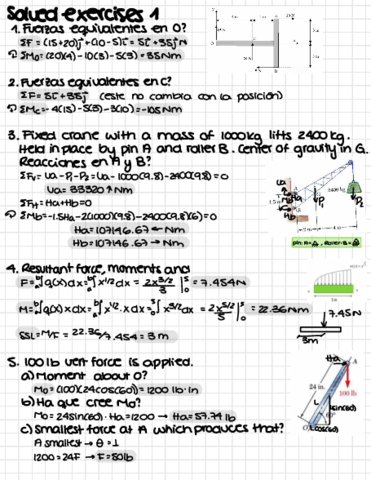 Solved exercises 1
1. Fuerzas equivalentes en O?
ΣF = (15+20)ĵ + (10-5)î = 5î + 35ĵ N
ΣMo = (20)(4) - 10(3) - 5(3) = 35Nm
2. Fuerzas equivalentes en C?
ΣF = 5î + 35ĵ (este no cambia con la posición)
ΣMc = -4(15) - 5(3) - 3(10) = -105Nm
3. Fixed crane with a mass of 1000kg lifts 2400kg.
Held in place by pin A and roller B. Center of gravity in G.
Reacciones en A y B?
ΣFy = Ua - P1 - P2 = Ua - 1000(9.8) - 2400(9.8) = 0
Ua = 33320 ↑ Nm
ΣFx = Ha + Hb = 0
ΣMb = -1.5Ha - 2(1000)(9.8) - 2400(9.8)(6) = 0
Ha = 107146.67 ← Nm
Hb = 107146.67 → Nm
2400 kg
pin: A = △, Roller: B = ○
4. Resultant force, moments and
F = ∫ q(x) dx = ∫ x^1/2 dx = 2x^3/2 / 3 | = 7.454N
M = ∫ q(x) x dx = ∫ x^1/2 · x dx = ∫ x^3/2 dx = 2x^5/2 / 5 | = 22.36Nm
SSL = M/F = 22.36/7.454 = 3m
7.45N
3m
5. 100 lb vert force is applied.
a) Moment about O?
Mo = (100)(24cos(60)) = 1200 lb·in
b) Ha que cree Mo?
Mo = 24sin(60) · Ha = 1200 → Ha = 57.74 lb
c) Smallest force at A which produces that?
A smallest → θ = ⊥
1200 = 24F → F = 50lb
Ha
A
24 in.
100 lb
L
Lsin(60)
60°
O
Lcos(60)